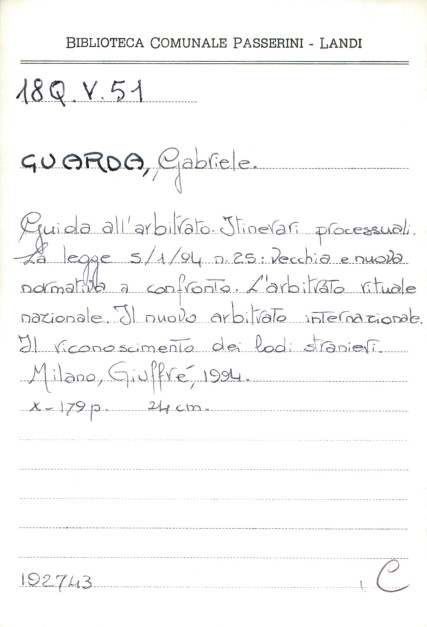 BIBLIOTECA COMUNALE PASSERINI - LANDI
18Q.V.51
GUARDA, Gabriele.
Guida all'arbitrato. Itinerari processuali.
La legge 5/1/94 n. 25: vecchia e nuova
normativa a confronto. L'arbitrato rituale
nazionale. Il nuovo arbitrato internazionale.
Il riconoscimento dei lodi stranieri.
Milano, Giuffré, 1994.
X - 179 p. 24 cm.
192743 C